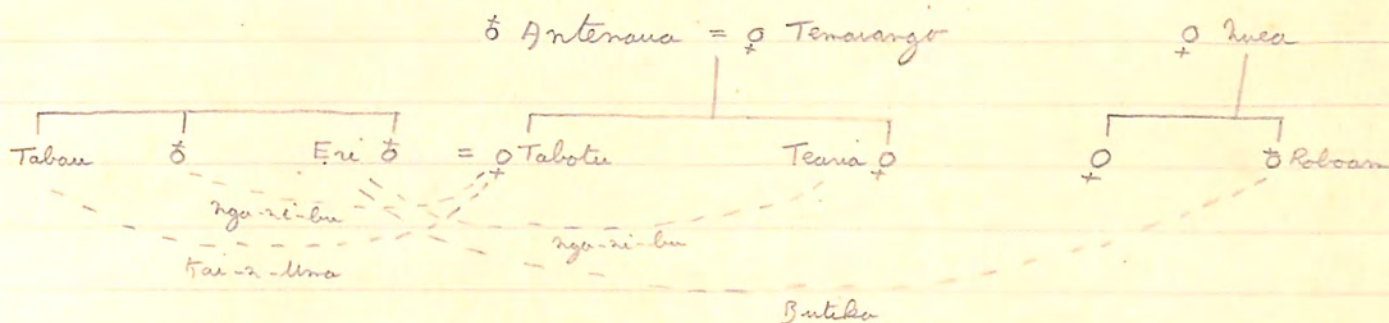 ♂ Antenaua = ♀ Temarango ♀ Nuea
Tabau ♂ Eri ♂ = ♀ Tabotu Tearia ♀ ♀ ♂ Roboam
nga-ni-bu nga-ni-bu
Kai-n-Uma
Butika